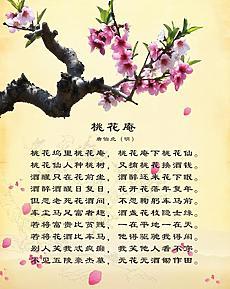 桃花庵
唐伯虎（明）
桃花坞里桃花庵，桃花庵下桃花仙。
桃花仙人种桃树，又摘桃花换酒钱。
酒醒只在花前坐，酒醉还来花下眠。
日复日，花开花落年复年。
老死花酒间，不鞠躬车马前。
车尘马足富者趣，酒盏花枝隐士缘。
若将富贵比贫贱，一在平地一在天。
若将花酒比车马，他得驱驰我得闲。
别人笑我忒疯癫，我笑他人看不穿。
不见五陵豪杰墓，无花无酒锄作田。